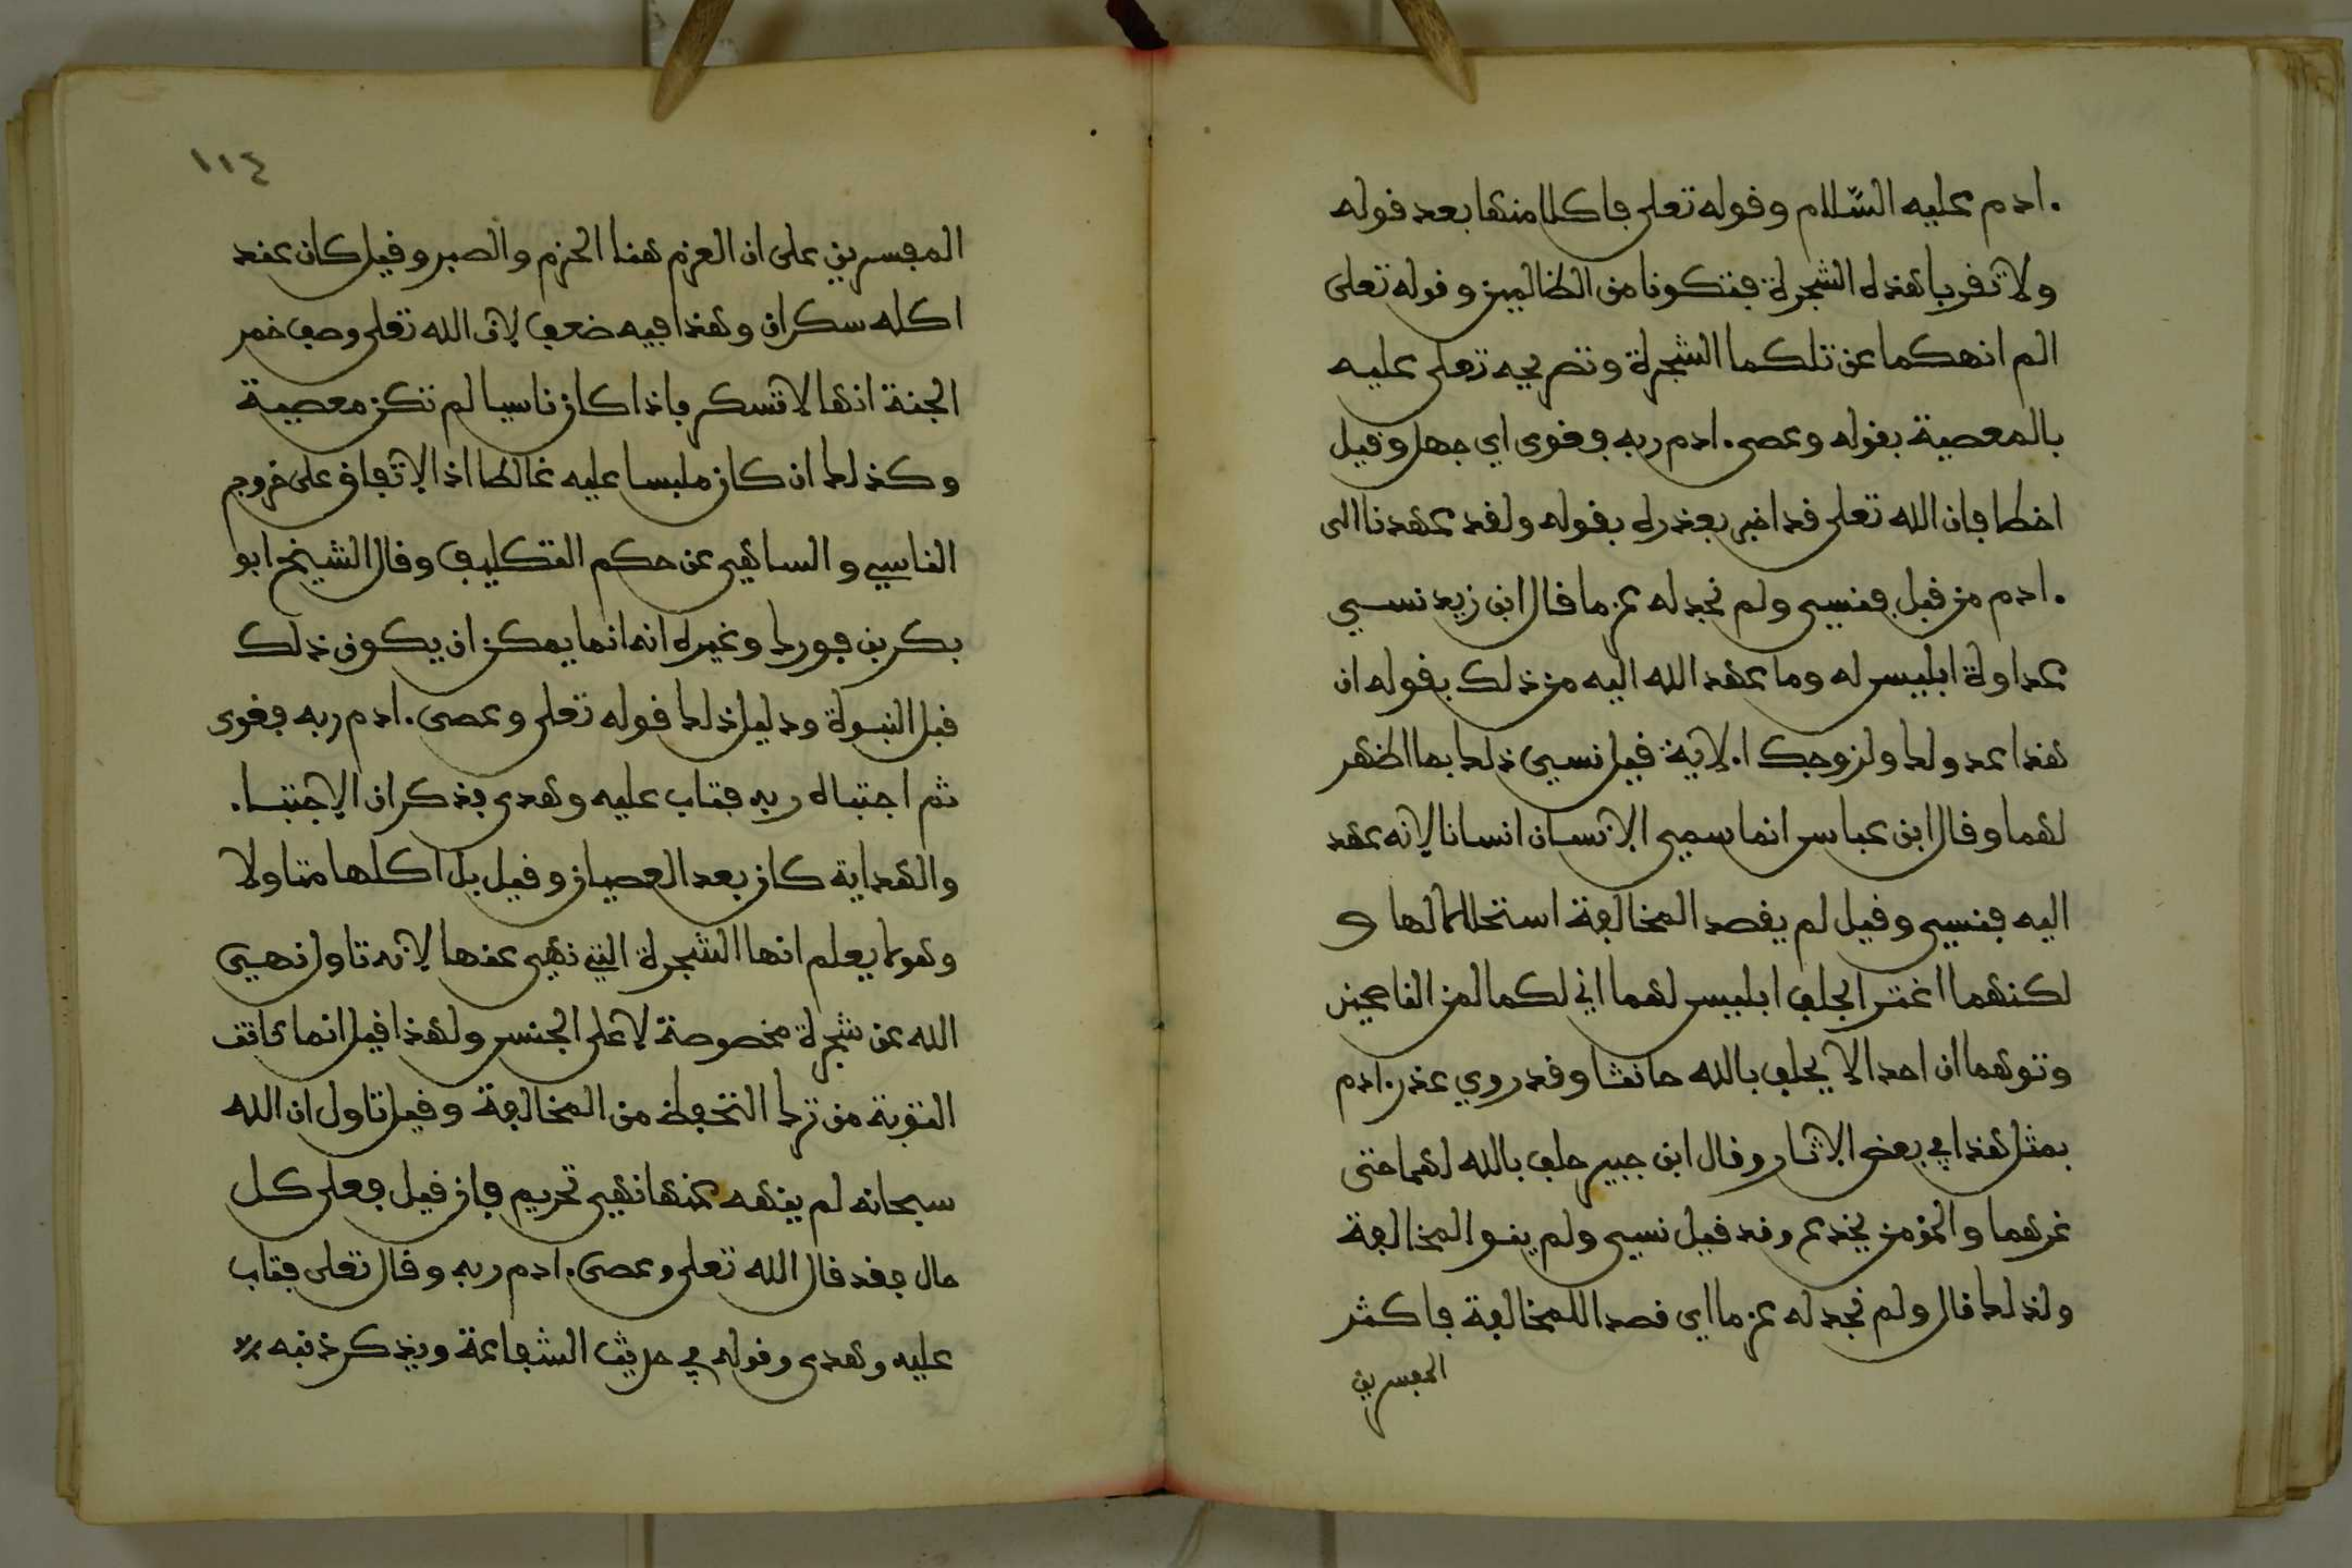 ادم عليه السلام وقوله تعلى فاكلا منها بعد قوله
ولا تقربا هذه الشجرة فتكونا من الظالمين وقوله تعلى
الم انهكما عن تلكما الشجرة وتصريحه تعلى عليه
بالمعصية بقوله وعصى ادم ربه فغوى اي جهل وقيل
اخطا فان الله تعلى قد اخبر بعذره بقوله ولقد عهدنا الى
ادم من قبل فنسي ولم نجد له عزما قال ابن زيد نسي
عداوة ابليس له وما عهد الله اليه من ذلك بقوله ان
هذا عدو لك ولزوجك الاية قيل نسي ذلك بما اظهر
لهما وقال ابن عباس انما سمي الانسان انسانا لانه عهد
اليه فنسي وقيل لم يقصد المخالفة استحلالا لها و
لكنهما اغترا بحلف ابليس لهما اني لكما لمن الناصحين
وتوهما ان احدا لا يحلف بالله حانثا وقد روي عذر ادم
بمثل هذا في بعض الاثار وقال ابن جبير حلف بالله لهما حتى
غرهما والمؤمن يخدع وقد قيل نسي ولم ينو المخالفة
ولذلك قال ولم نجد له عزما اي قصدا للمخالفة فاكثر
المفسرين
١١٤
المفسرين على ان العزم هنا الحزم والصبر وقيل كان عند
اكله سكران وهذا فيه ضعف لان الله تعلى وصف خمر
الجنة انها لا تسكر فاذا كان ناسيا لم تكن معصية
وكذلك ان كان ملبسا عليه غالطا اذ الاتفاق على خروج
الناسي والساهي عن حكم التكليف وقال الشيخ ابو
بكر بن فورك وغيره انه انما يمكن ان يكون ذلك
قبل النبوة ودليل ذلك قوله تعلى وعصى ادم ربه فغوى
ثم اجتباه ربه فتاب عليه وهدى فذكر ان الاجتباء
والهداية كان بعد العصيان وقيل بل اكلها متاولا
وهو لا يعلم انها الشجرة التي نهي عنها لانه تاول نهي
الله عن شجرة مخصوصة لا على الجنس ولهذا قيل انما كانت
التوبة من ترك التحفظ من المخالفة وقيل تاول ان الله
سبحانه لم ينهه عنها نهي تحريم فان قيل فعلى كل
حال فقد قال الله تعلى وعصى ادم ربه وقال تعلى فتاب
عليه وهدى وقوله في حديث الشفاعة ويذكر ذنبه